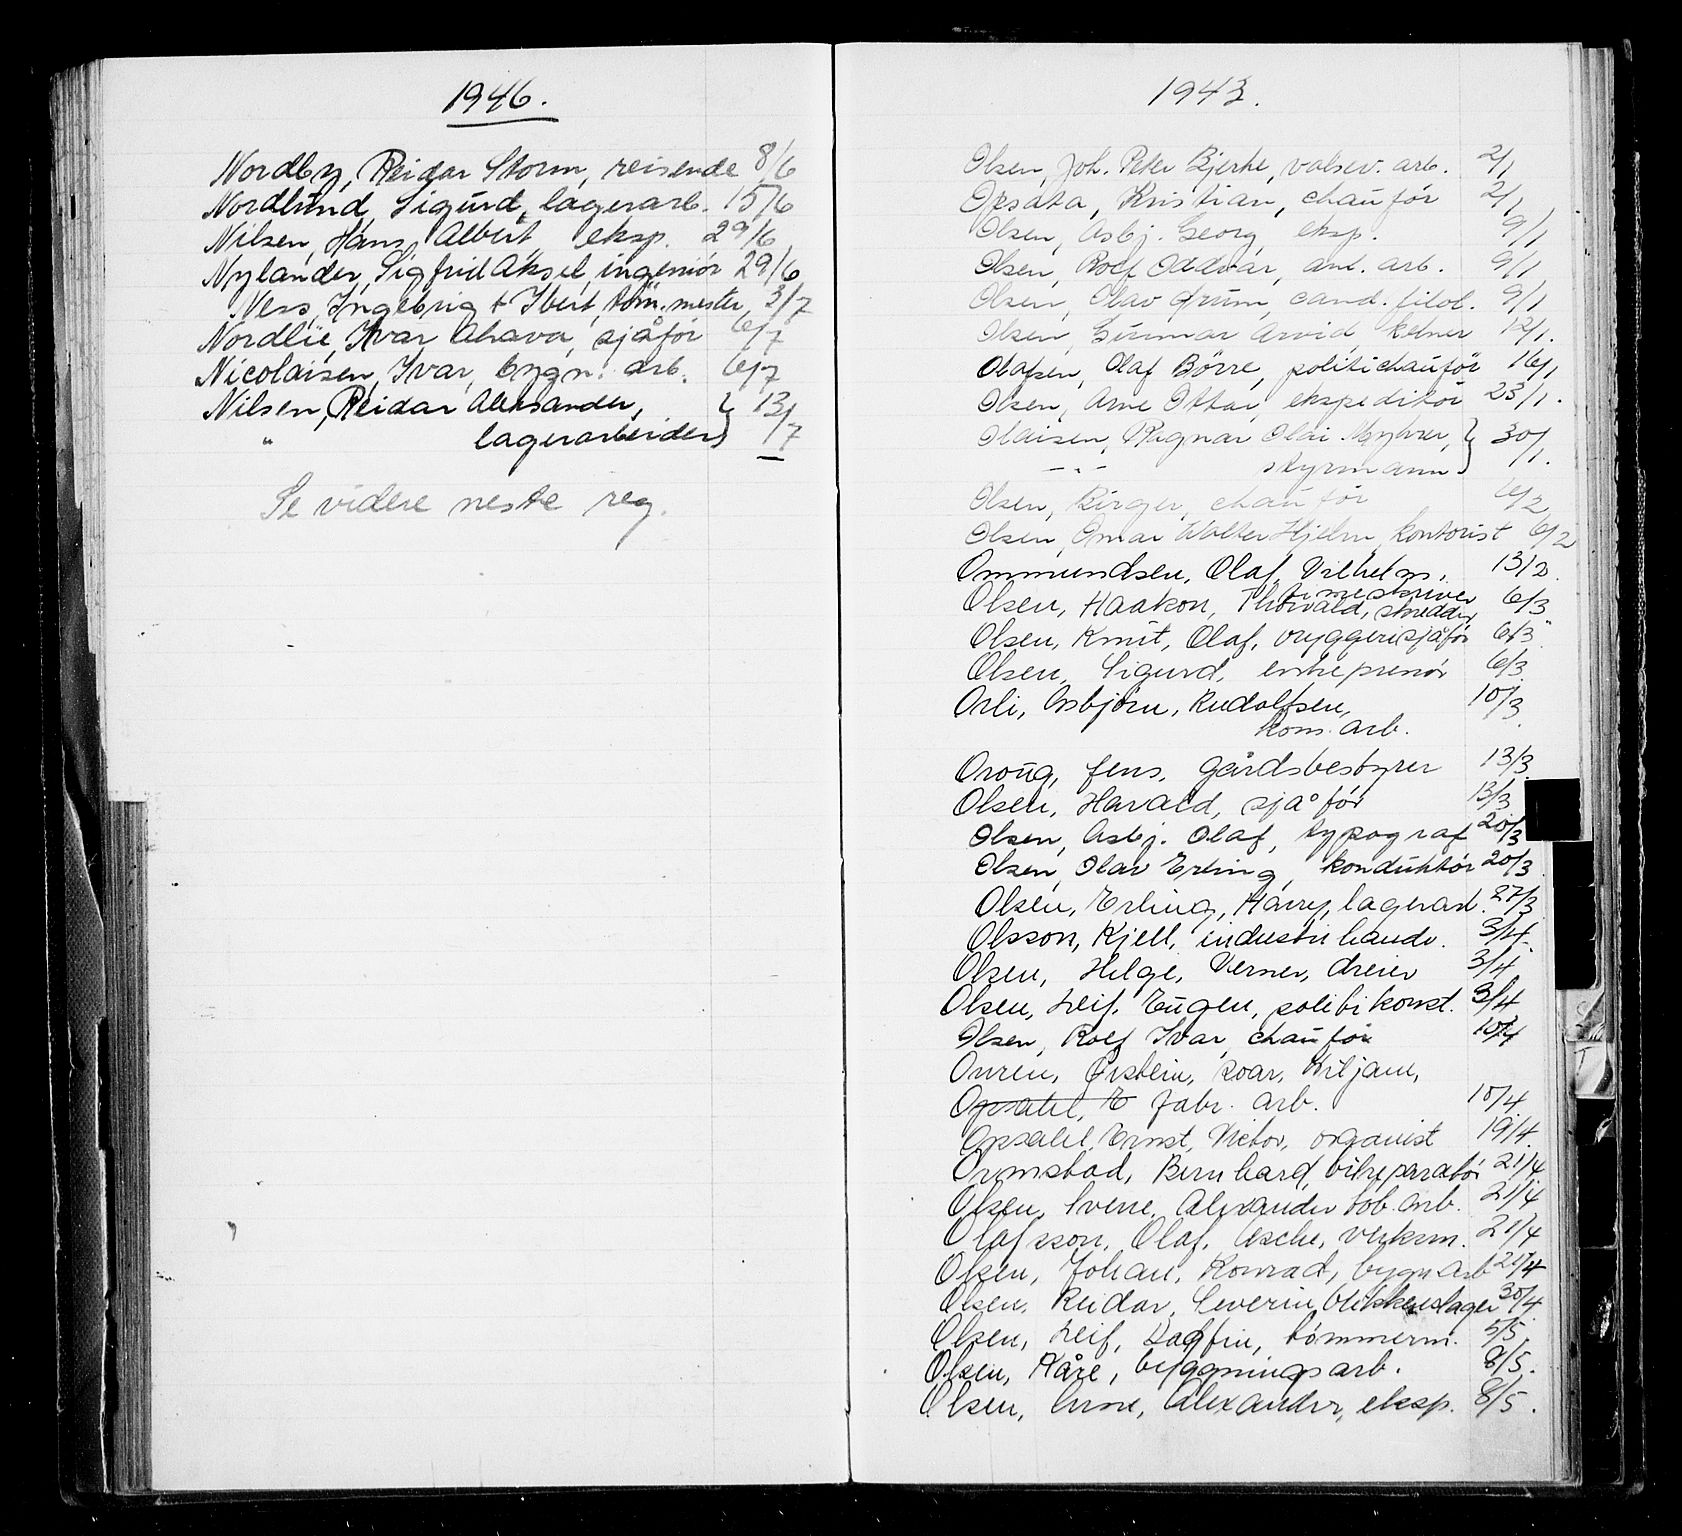 1946.
Nordby, Reidar Storm, reisende 8/6
Nordlund, Sigurd, lagerarb. 15/6
Nilsen, Hans Albert, eksp. 29/6
Nylander, Sigfrid Aksel, ingeniør 29/6
Ness, Ingebrigt Ibert, töm. mester, 3/7
Nordlie, Ivar Ahava, sjåfør 6/7
Nicolaisen, Ivar, bygn. arb. 6/7
Nilsen, Reidar Aleksander, } 13/7
" lagerarbeider
Se videre neste reg.
1943.
Olsen, Joh. Peter Bjerke, valsev. arb. 2/1
Opsata, Kristian, chaufför 2/1
Olsen, Asbj. Georg, eksp. 9/1
Olsen, Rolf Oddvar, anl. arb. 9/1
Olsen, Olav Grum, cand. filol. 9/1
Olsen, Gunnar Arvid, kelner 12/1.
Olafsen, Olaf Börre, politichaufför 16/1
Olsen, Arne Ottar, ekspeditör 23/1.
Olaisen, Ragnar Olai Myhrer, } 30/1.
-"- styrmann
Olsen, Birger, chaufför 6/2
Olsen, Omar Walter Hjelm, kontorist 6/2
Ommundsen, Olaf, Vilhelm, 13/2.
timeskriver
Olsen, Haakon, Thorvald, skredder 6/3
Olsen, Knut, Olaf, bryggerisjåfør 6/3
Olsen, Sigurd, entreprenör 6/3.
Orli, Asbjörn, Rudolfsen, 10/3.
kom. arb.
Oroug, Jens, gårdsbestyrer 13/3.
Olsen, Harald, sjåför 13/3
Olsen, Asbj. Olaf, typograf 20/3
Olsen, Olav Erling, konduktör 20/3.
Olsen, Erling, Harry, lagerarb. 27/3
Olsson, Kjell, industri handv. 3/4.
Olsen, Helge, Verner, dreier 3/4
Olsen, Leif, Eugen, politi konst. 3/4
Olsen, Rolf Ivar, chauför 10/4
Onren, Öistein, Roar, Wiljam,
Opsahl, E fabr. arb. 10/4
Opsahl, Ernst, Victor, organist 19/4.
Ormstad, Bernhard, bilreparatör 21/4
Olsen, Sverre, Alexander tob. arb. 21/4
Olafsson, Olaf, Asche, verksm. 21/4
Olsen, Johan, Konrad, bygn. arb 21/4
Olsen, Reidar, Severin, blikkenslager 30/4
Olsen, Leif, Dagfin, tömmerm. 5/5.
Olsen, Kåre, byggningsarb. 8/5.
Olsen, Arne, Alexander, eksp. 8/5.